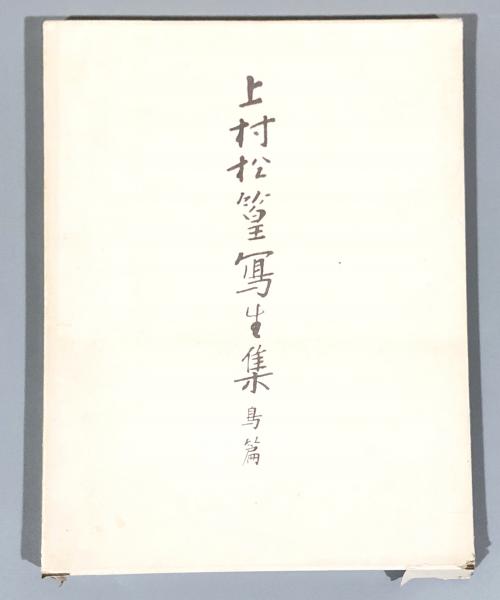 上村松篁寫生集鳥篇